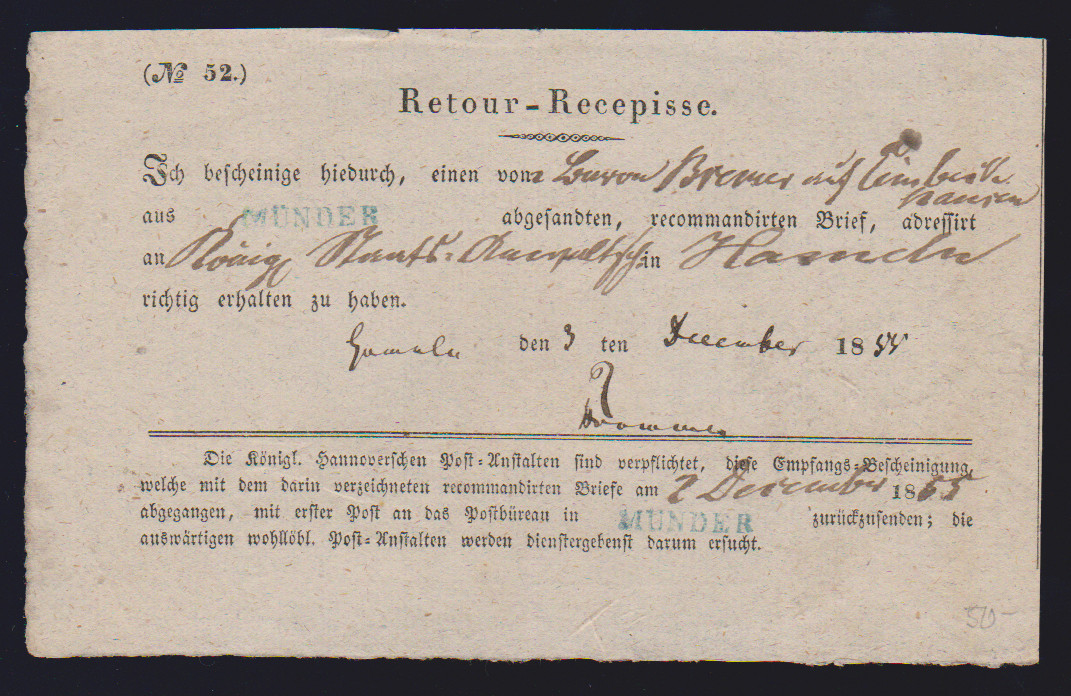 (№ 52.)
Retour-Recepisse.
Ich bescheinige hiedurch, einen vom Baron Bremer auf
hausen
aus MÜNDER abgesandten, recommandirten Brief, adressirt
an Königl Staats-Anwaltsch. in Hameln
richtig erhalten zu haben.
Hameln den 3 ten December 1855
Die Königl. Hannoverschen Post-Anstalten sind verpflichtet, diese Empfangs-Bescheinigung,
welche mit dem darin verzeichneten recommandirten Briefe am 2 December 1855
abgegangen, mit erster Post an das Postbüreau in MÜNDER zurückzusenden; die
auswärtigen wohllöbl. Post-Anstalten werden dienstergebenst darum ersucht.
50-